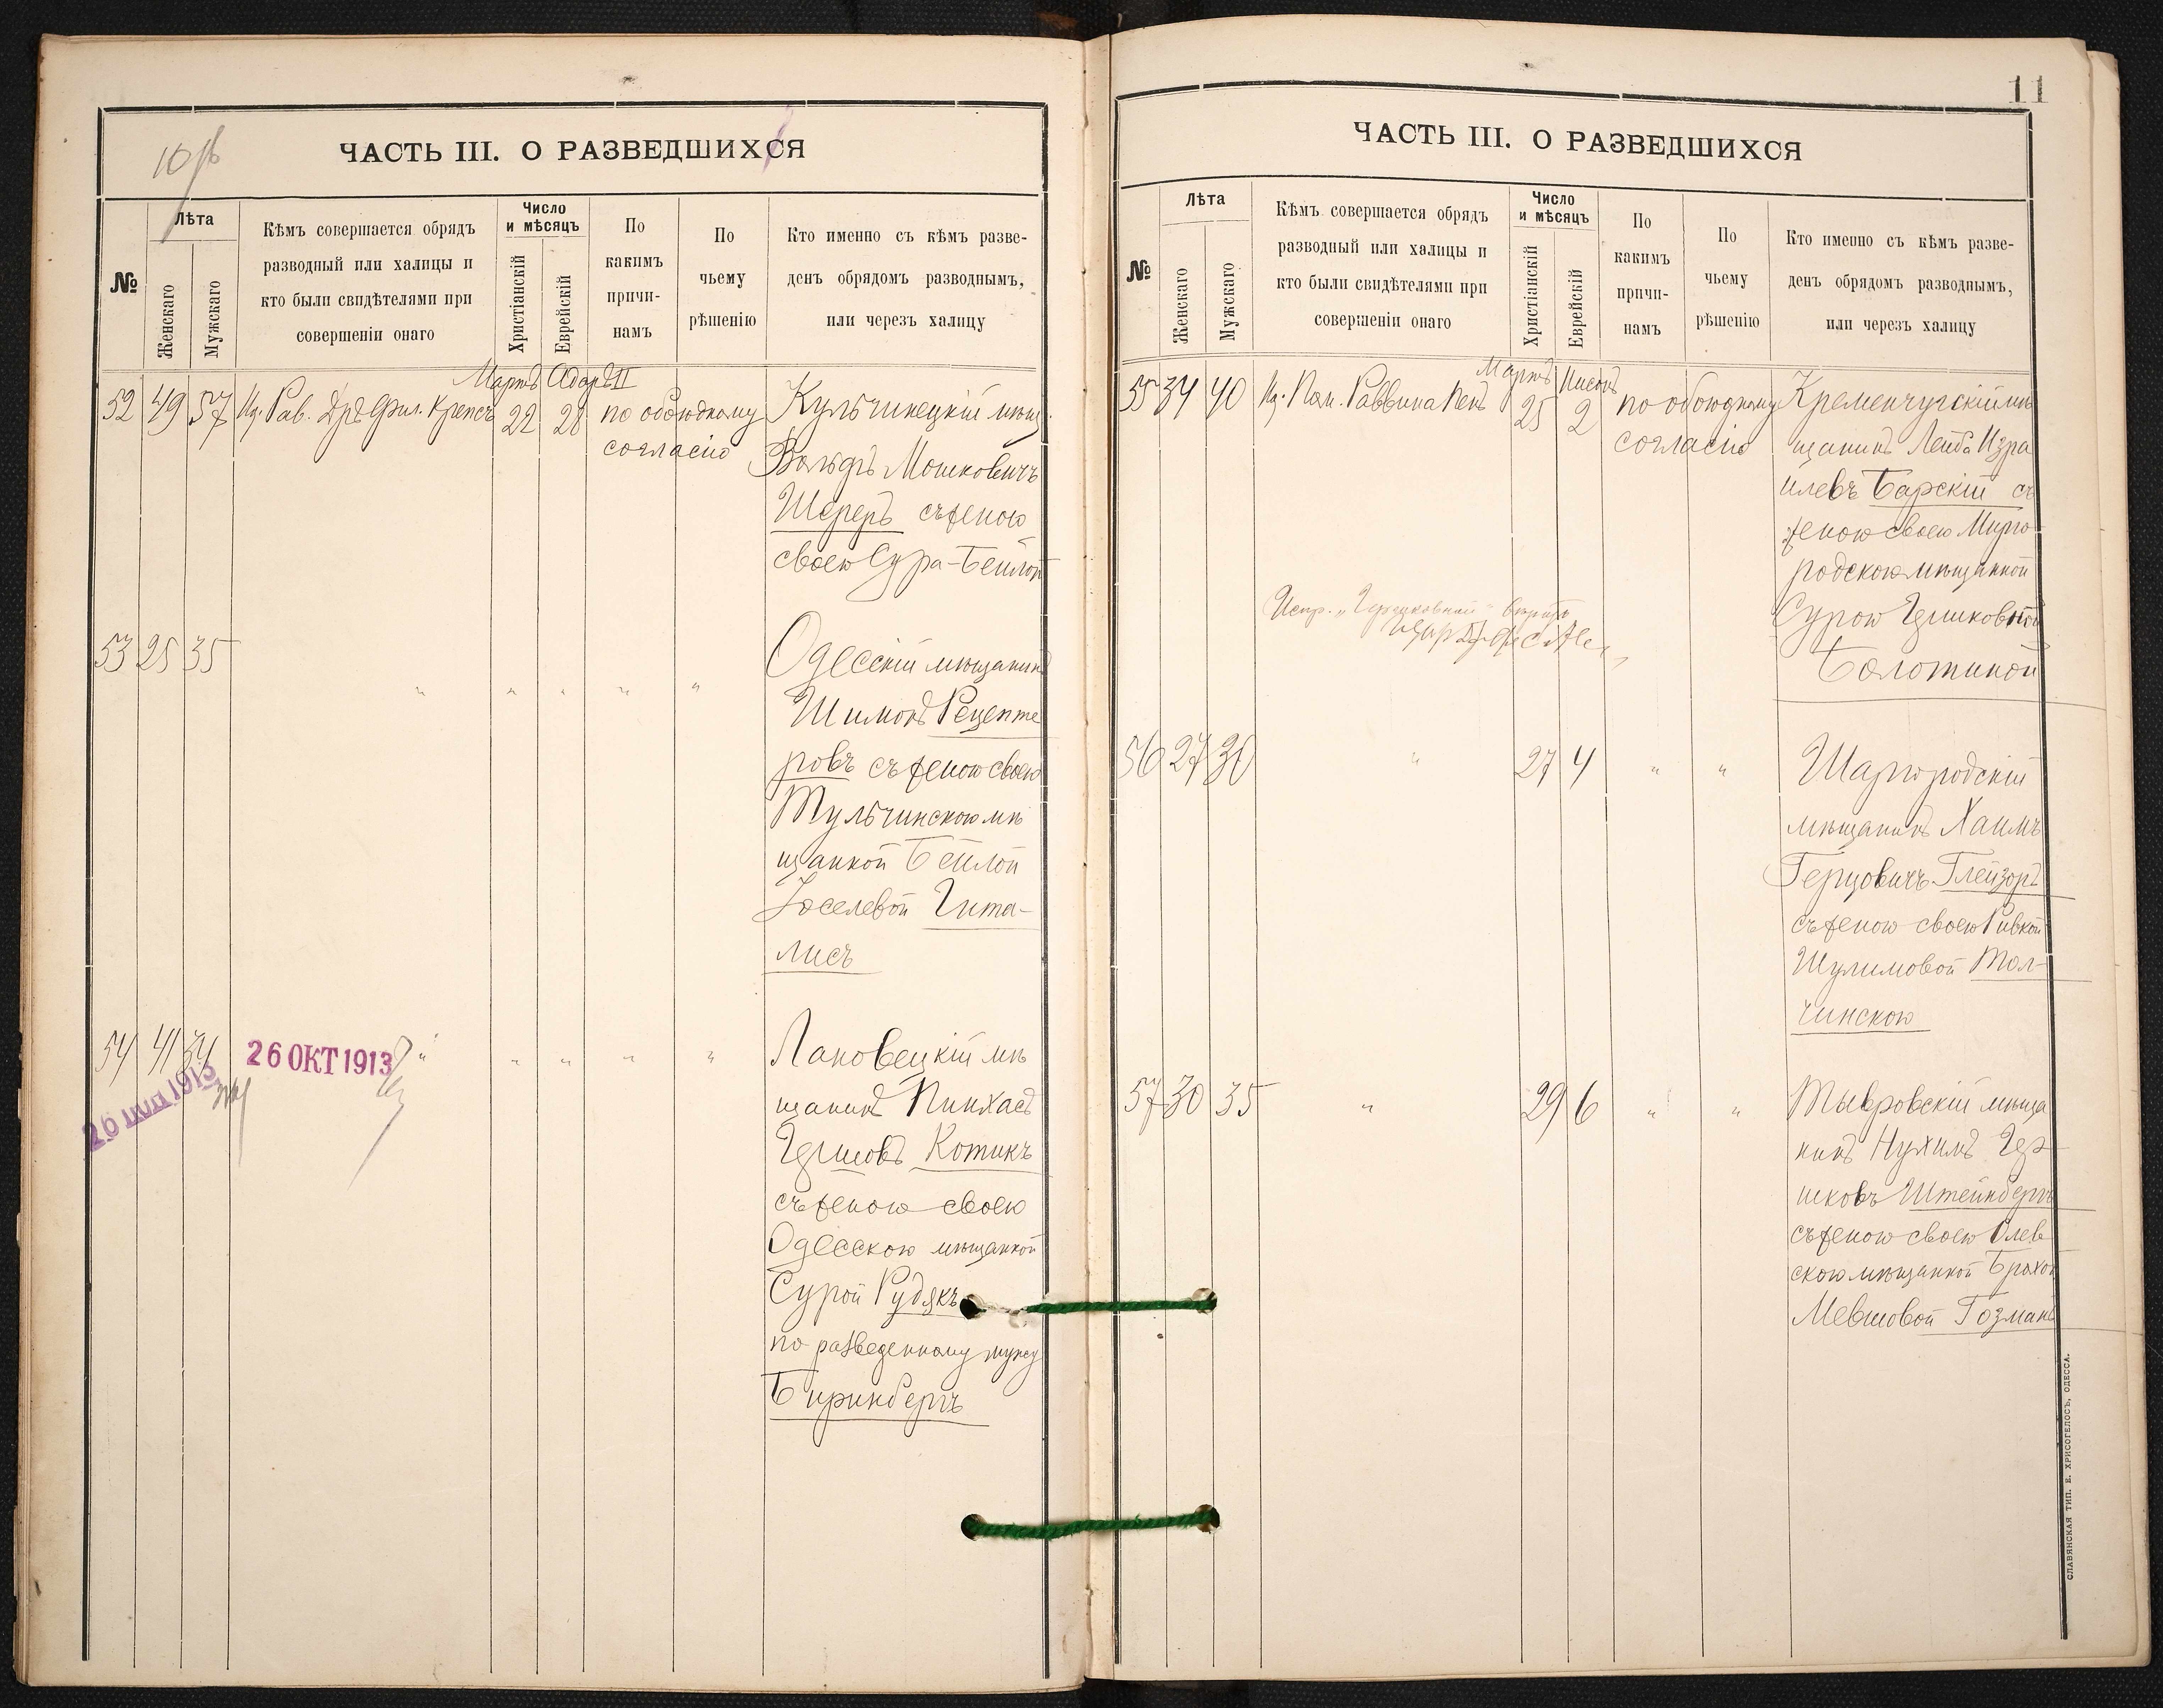 ЧАСТЬ III. О РАЗВЕДШИХСЯ
№
Лѣта
Женскаго
Мужскаго
Кѣмъ совершается обрядъ
разводный или халицы и
кто были свидѣтелями при
совершеніи онаго
Число
и мѣсяцъ
Христіанскій
Еврейскій
По
какимъ
причи-
намъ
По
чьему
рѣшенію
Кто именно съ кѣмъ разве-
денъ обрядомъ разводнымъ,
или через халицу
Мартъ Адаръ II
52 49 57 Рав. Дръ Фил. Крепсъ 22 28 по обоюдному
согласію
Кульчинецкій мѣщ.
Вольфъ Мошковичъ
Шереръ съ женою
своею Сура-Бейлой
53 25 35 " " " " "
Одесскій мѣщанинъ
Шимонъ Рецепте
ровъ съ женою своею
Тульчинскою мѣ
щанкой Бейлой
Іоселевой Гита-
лисъ
54 41 34 " " " " "
26 ОКТ 1913
1913
Лановецкій мѣ
щанинъ Пинхасъ
Гершовъ Котикъ
съ женою своею
Одесскою мѣщанкой
Сурой Рудякъ
по разведенному мужу
Биринбергъ
11
ЧАСТЬ III. О РАЗВЕДШИХСЯ
№
Лѣта
Женскаго
Мужскаго
Кѣмъ совершается обрядъ
разводный или халицы и
кто были свидѣтелями при
совершеніи онаго
Число
и мѣсяцъ
Христіанскій
Еврейскій
По
какимъ
причи-
намъ
По
чьему
рѣшенію
Кто именно съ кѣмъ разве-
денъ обрядомъ разводнымъ,
или через халицу
Мартъ Нисонъ
55 34 40 Пом. Раввина Пенъ 25 2 по обоюдному
согласію
Кременчугскій мѣ
щанинъ Лейба Изра
илевъ Барскій съ
женою своею Мирго
родскою мѣщанкой
Сурою Гершковной
Болотиной
Испр. „Гершковной"
56 27 30 " 27 4 " "
Шаргородскій
мѣщанинъ Хаимъ
Герцовичъ Глейзоръ
съ женою своею Ривкой
Шулимовой Тол-
чинскою
57 30 35 " 29 6 " "
Тывровскій мѣща
нинъ Нухимъ Гер
шковъ Штейнбергъ
съ женою своею Олев
скою мѣщанкой Брахой
Мевшовой Гозманъ
СЛАВЯНСКАЯ ТИП. Е. ХРИСОГЕЛОСЪ, ОДЕССА.